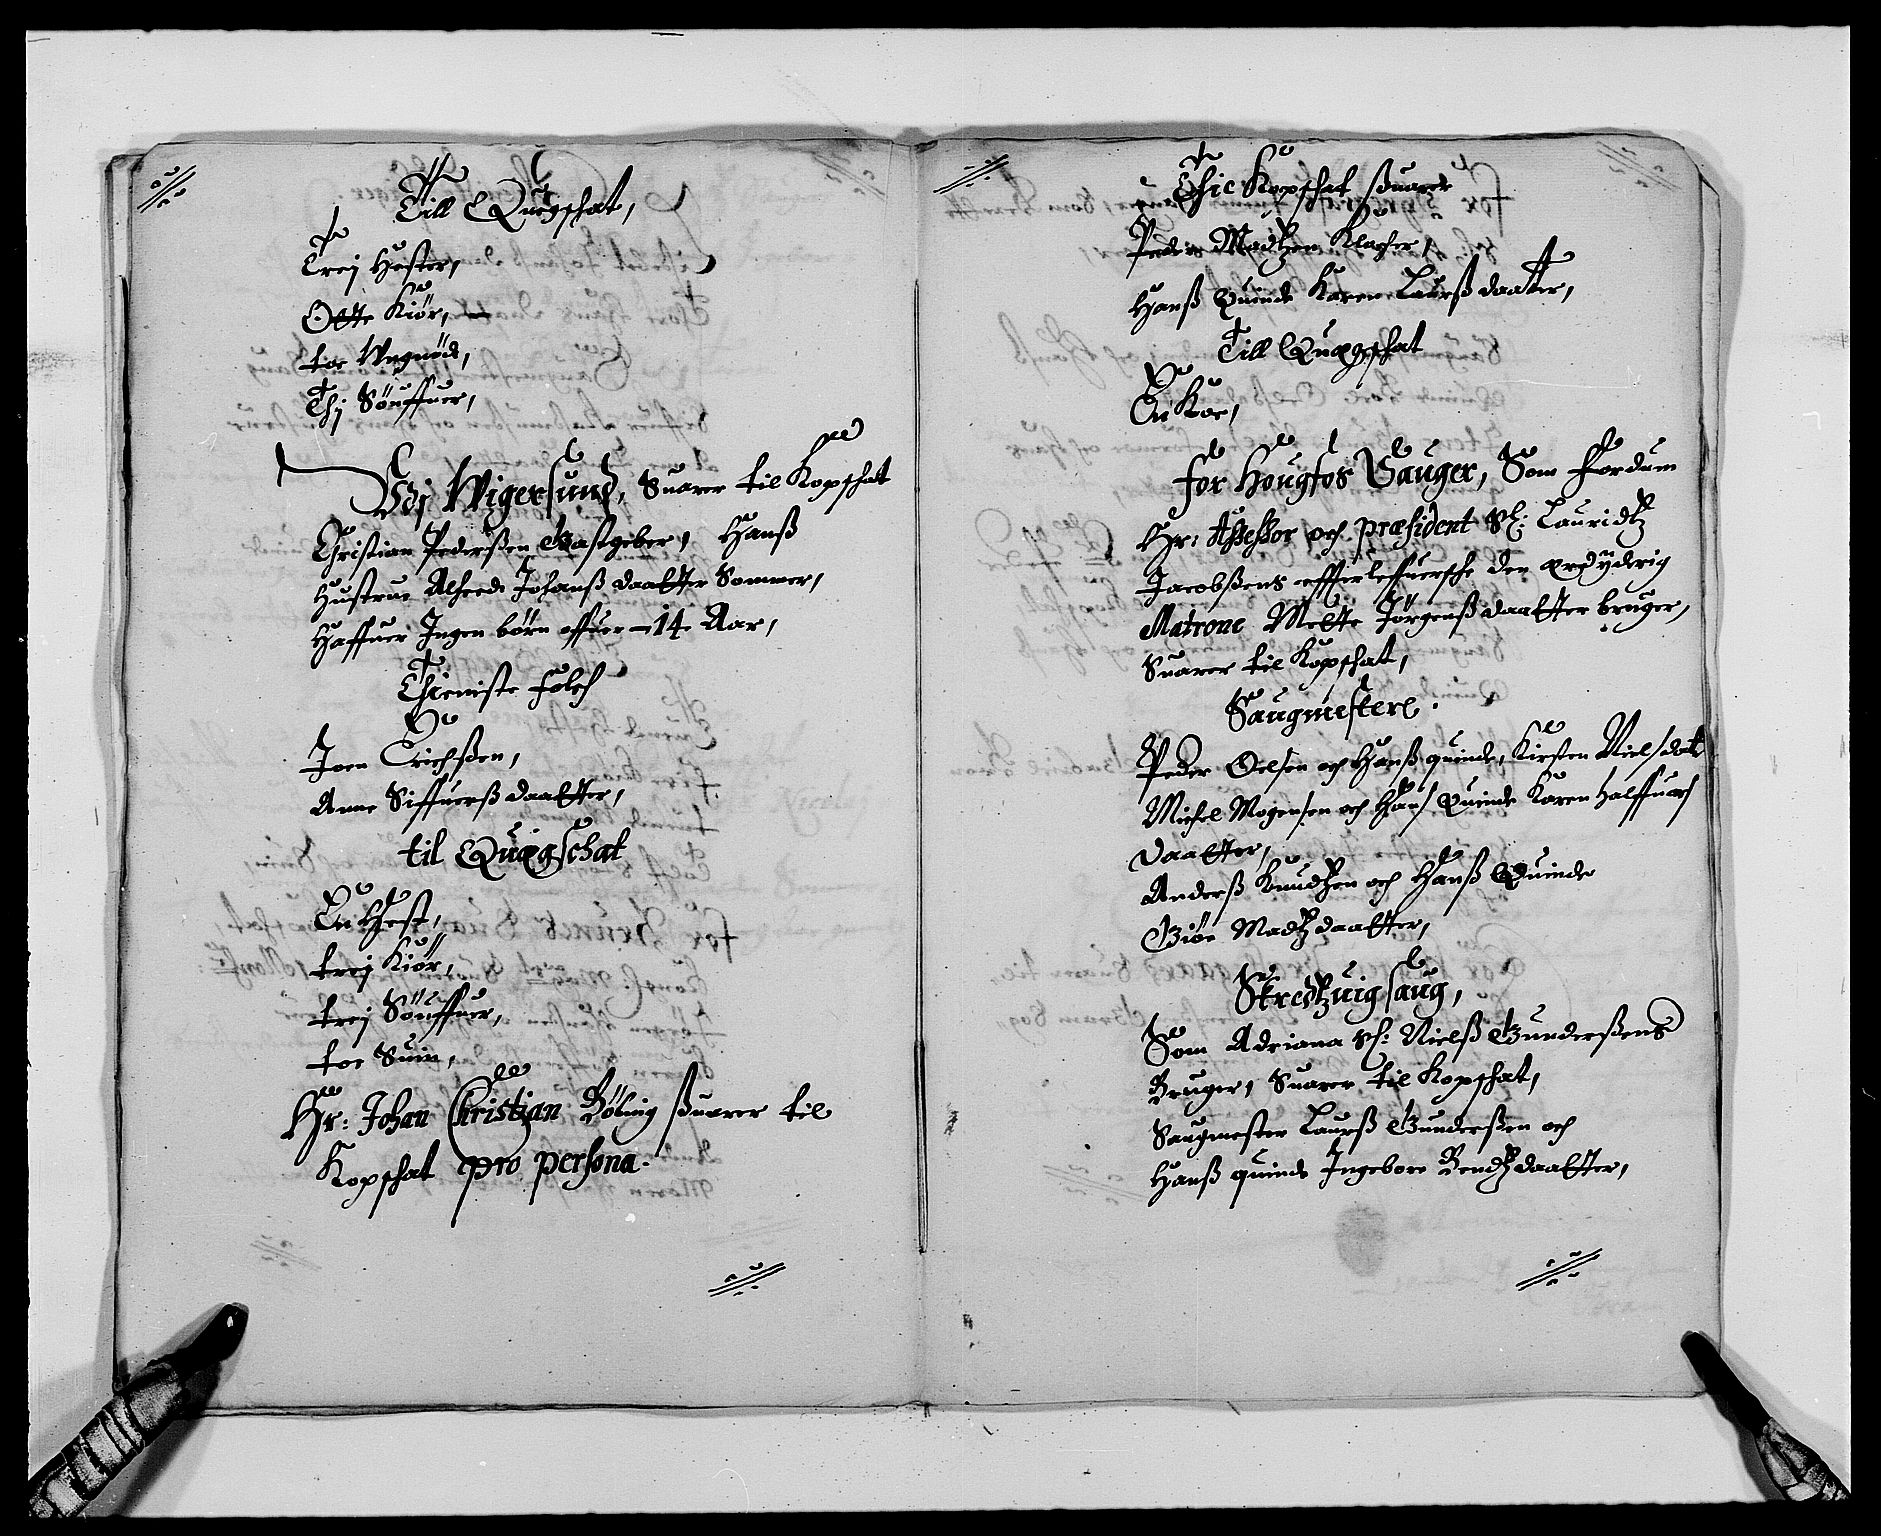 Till Quegschat,
Trej Hester,
Otte Kiör,
toe Ungnöd,
Thj Söuffuer,
Wej Wigersund, Suarer til Kopschat
Christian Pederßen Gastgeber, Hanß
Hustrue Alheed Johanß daatter Sommer,
Haffuer Ingen börn offuer 14 Aar,
Thieniste folch
Joen Erichßen,
Anne Siffuerß daatter,
til Quægschat
En Hest,
trej Kiör,
trej Söuffuer,
toe Suin,
Hr: Johan Christian Böling ßuarer til
Kopschat pro persona.
Thie Kopschat ßuarer
Peder Madtzen Klocher,
Hanß Quinde Karen Laurß daatter,
Till Quægschat
En Koe,
for Hougfos Sauger, Som fordum
Hr: Assessor och præsident Sl: Lauridtz
Jacobßens effterleffuersche den ærdÿderig
Matrone Mette Jörgenß daatter bruger,
Suarer til Kopschat,
Saugmestere.
Peder Oelsen och Hanß quinde, Kirsten Nielsdat
Michel Mogensen och Hans Quinde Karen Halffuors
Daatter,
Anderß Knudtzen och Hanß Quinde
Giöe Madtz daatter,
Skredtzuig saug,
Som Adriana Sl: Nielß Gunderßens
Bruger, Suarer til Kopschat,
Saugmester Laurß Gunderßen och
Hanß quinde Ingebore Bendtz daatter,